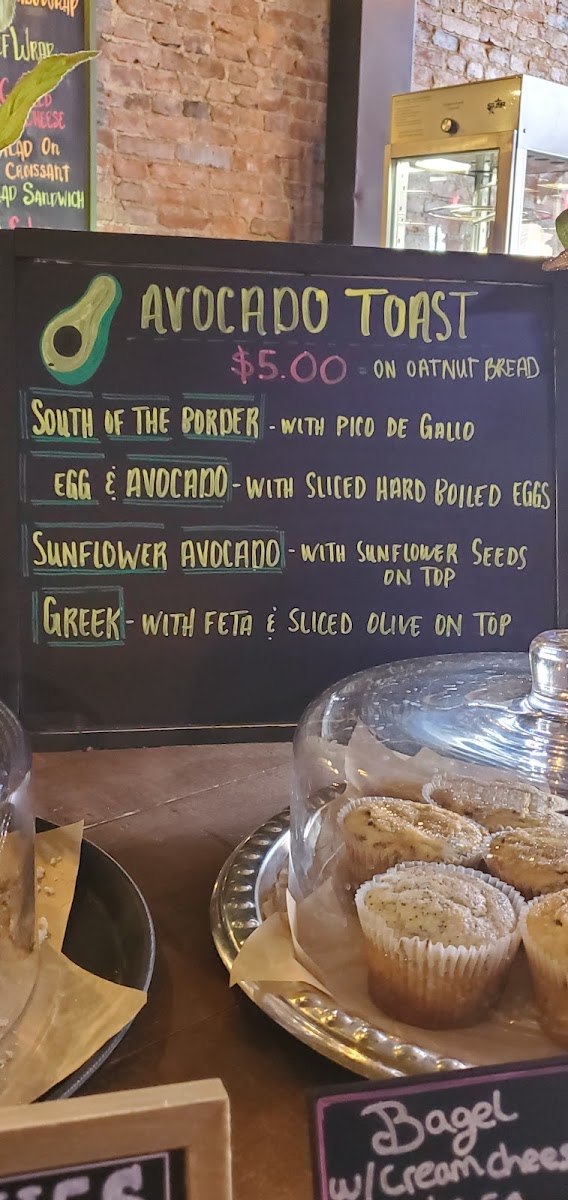 WRAP
WRAP
CHEESE
ON
CROISSANT
SANDWICH
AVOCADO TOAST
$5.00 - ON OATNUT BREAD
SOUTH OF THE BORDER - WITH PICO DE GALLO
EGG & AVOCADO - WITH SLICED HARD BOILED EGGS
SUNFLOWER AVOCADO - WITH SUNFLOWER SEEDS
ON TOP
GREEK - WITH FETA & SLICED OLIVE ON TOP
Bagel
w/Cream chees